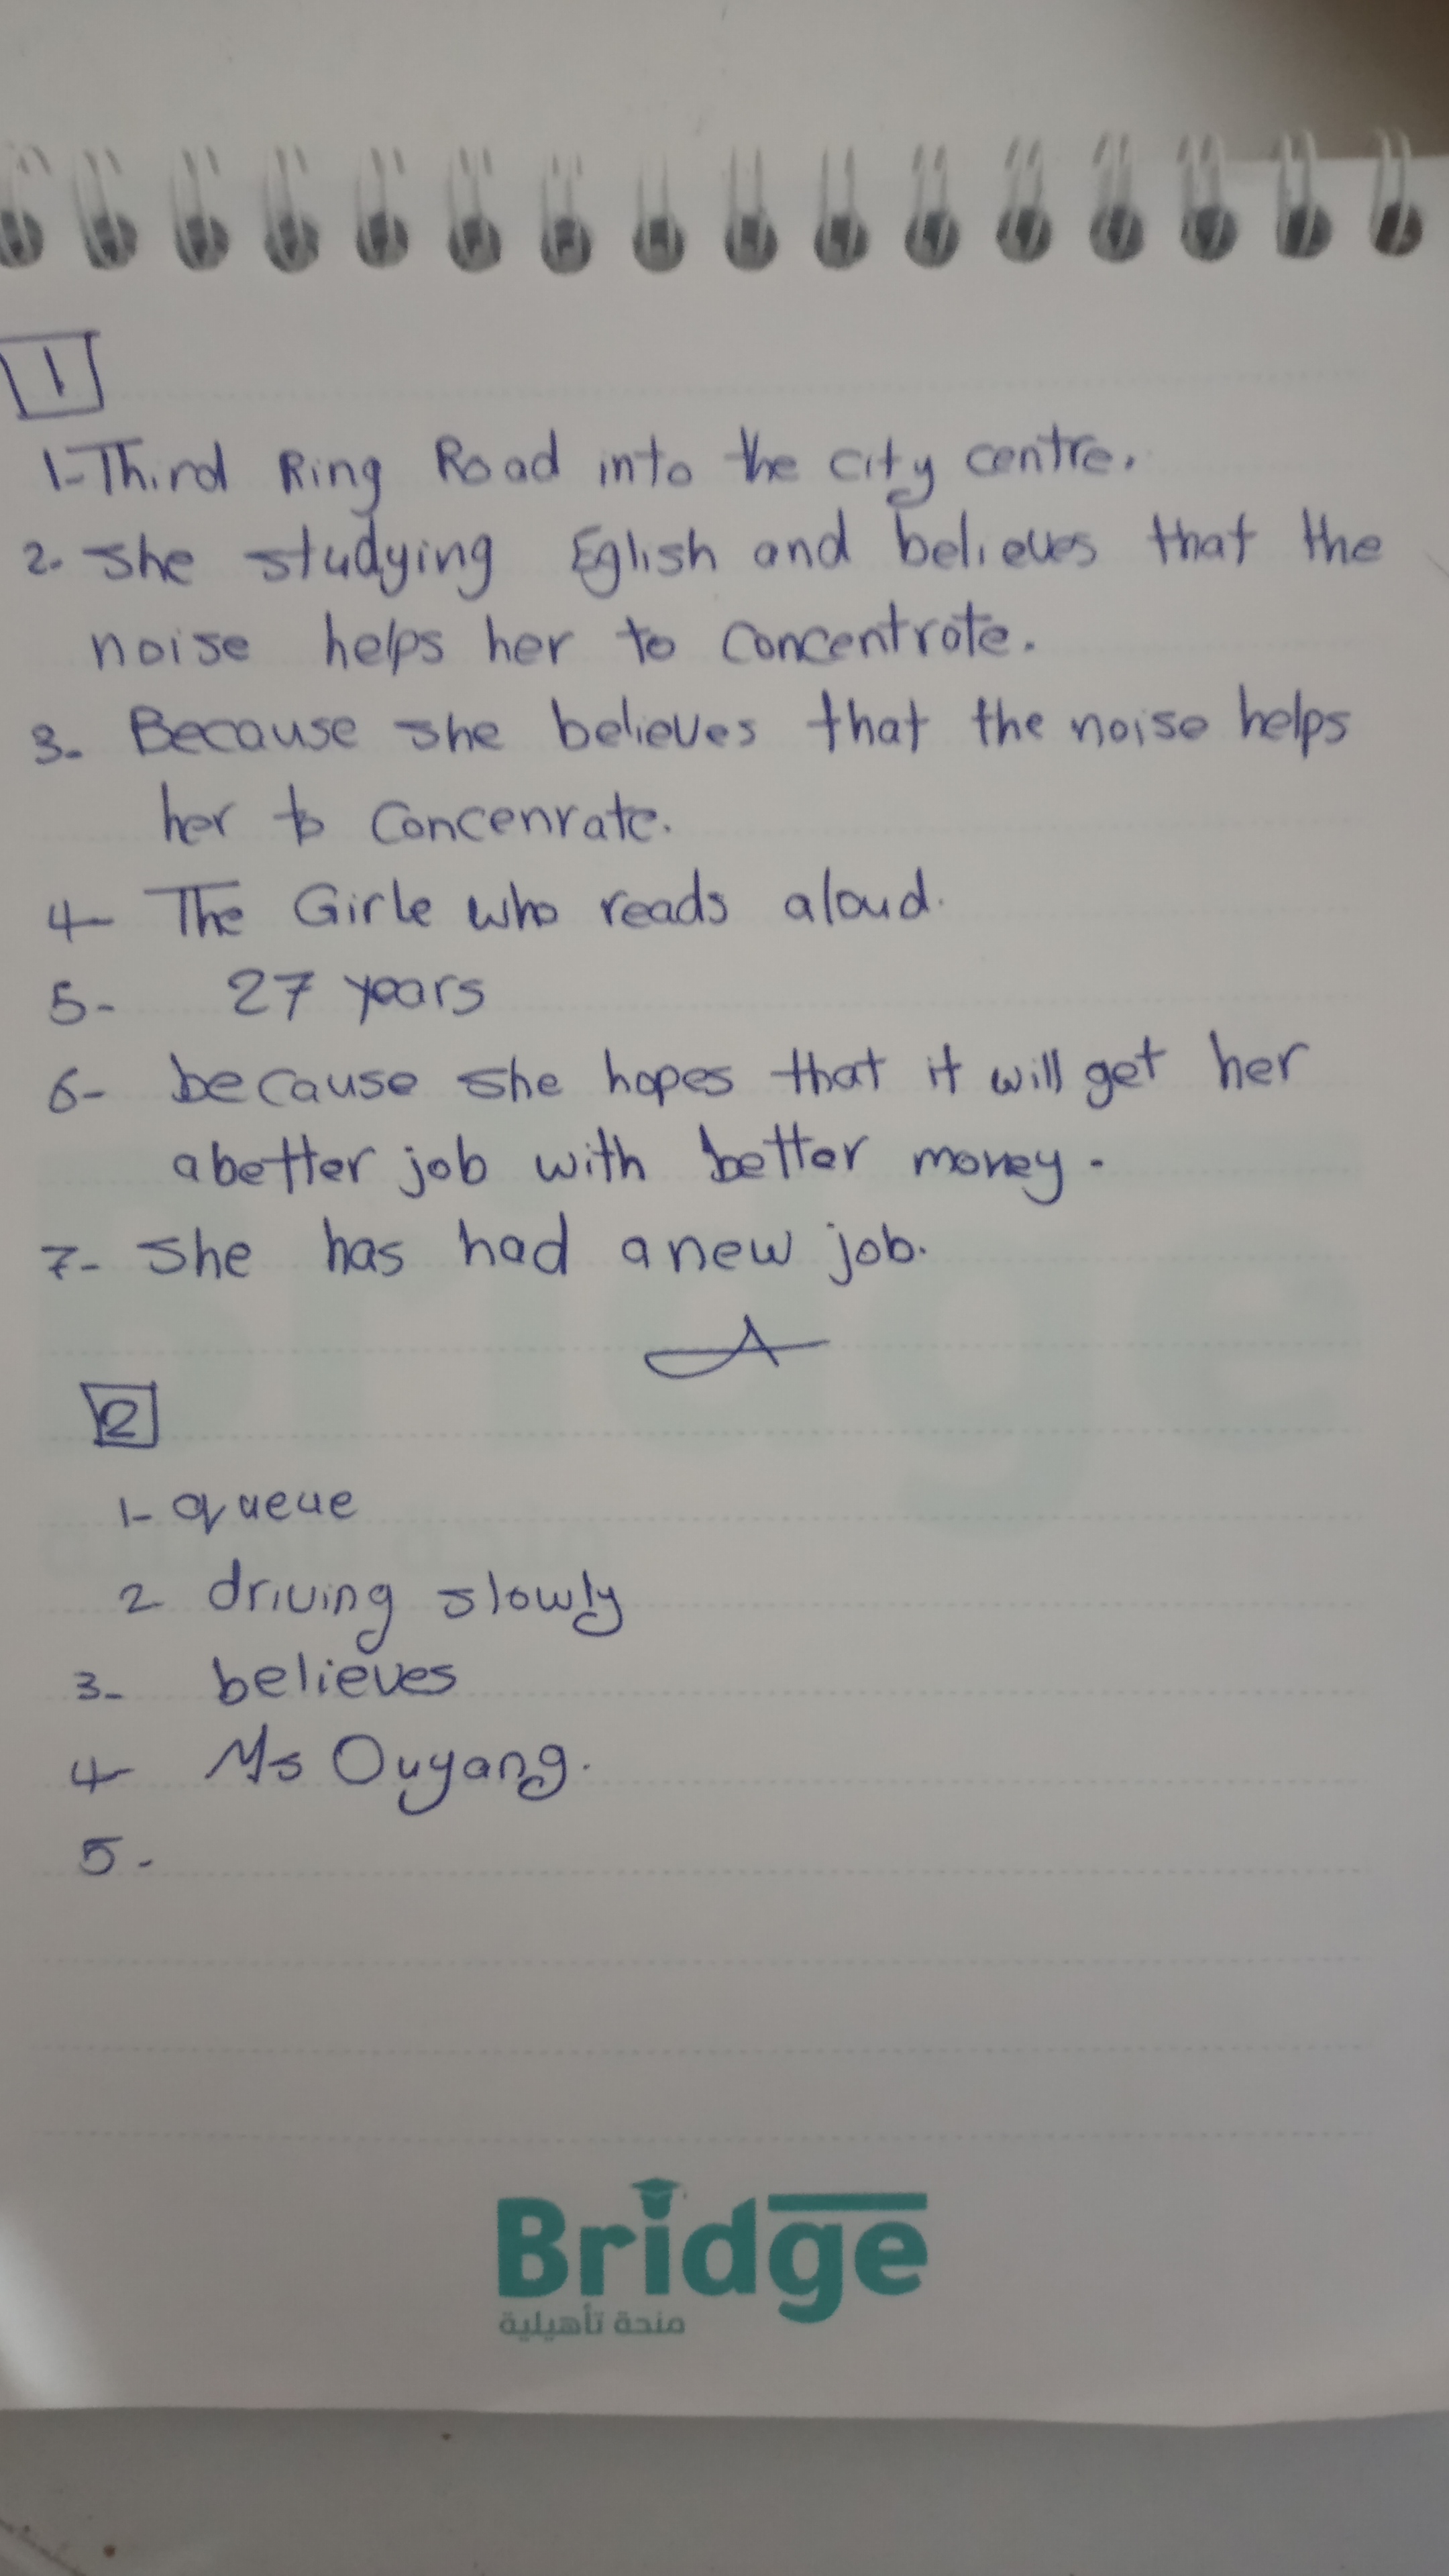 1
1- Third Ring Road into the city centre.
2- She studying Eglish and believes that the
noise helps her to concentrate.
3- Because she believes that the noise helps
her to concenrate.
4- The Girle who reads aloud.
5- 27 years
6- because she hopes that it will get her
a better job with better money.
7- She has had a new job.
2
1- queue
2 driving slowly
3- believes
4- Ms Ouyang.
5-
Bridge
منحة تأهيلية